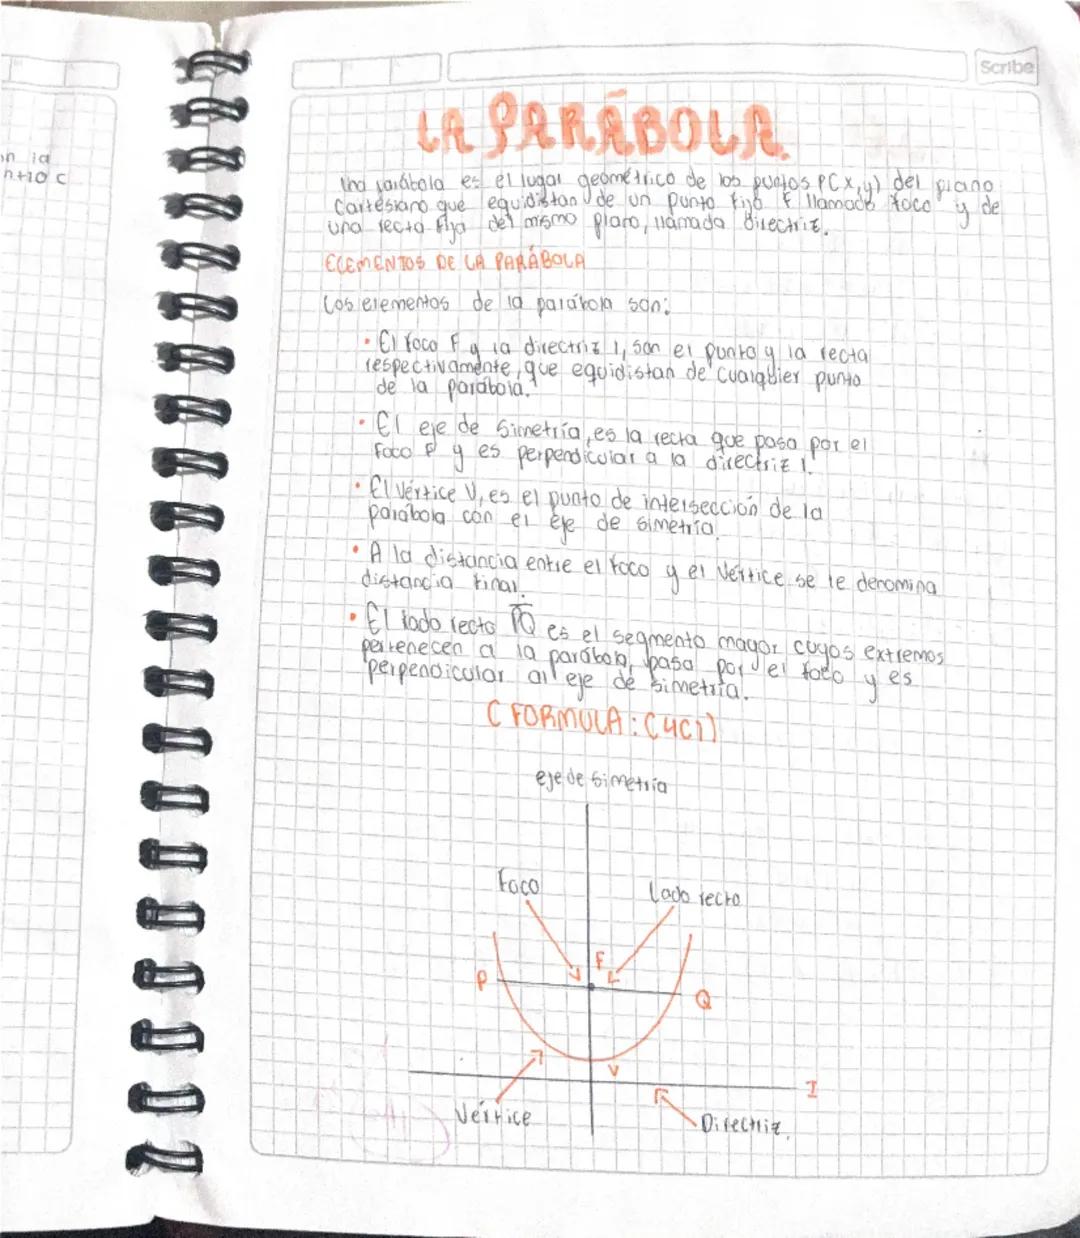 Scribe
LA PARÁBOLA.
Una parábola es el lugar geométrico de los puntos P(x,y) del plano
Cartesiano que equidistan de un punto fijo F llamado foco y de
una recta fija del mismo plano, llamada directriz.
ELEMENTOS DE LA PARÁBOLA
Los elementos de la parábola son:
• El foco F y la directriz l, son el punto y la recta
respectivamente, que equidistan de cualquier punto
de la parábola.
• El eje de simetría, es la recta que pasa por el
Foco F y es perpendicular a la directriz l.
• El vértice V, es el punto de intersección de la
parábola con el eje de simetría.
• A la distancia entre el foco y el vértice se le denomina
distancia final.
• El lado recto PQ es el segmento mayor cuyos extremos
pertenecen a la parábola, pasa por el foco y es
perpendicular al eje de simetría.
(FORMULA: (4C1)
eje de simetría
Foco
Lado recto
F
P
Q
V
I
Vértice
Directriz.
n la
n+10 c